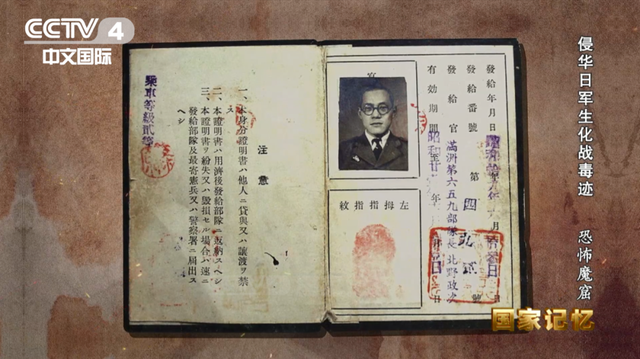 CCTV 4
中文国际
侵华日军生化战毒迹 恐怖魔窟
發給年月日
發給番號 第 四 號
發給官 滿洲第六五九部隊長北野政次
有效期間 昭和廿 年
官
左拇指指紋
注意
一、本身分證明書ハ他人ニ貸與又ハ讓渡ヲ禁
ス
二、本證明書ハ用濟後發給部隊ニ返納スヘシ
三、本證明書ヲ紛失又ハ毀損セル場合ハ速ニ
發給部隊及最寄憲兵又ハ警察署ニ届出ス
ヘシ
乘車等級貳等
国家记忆